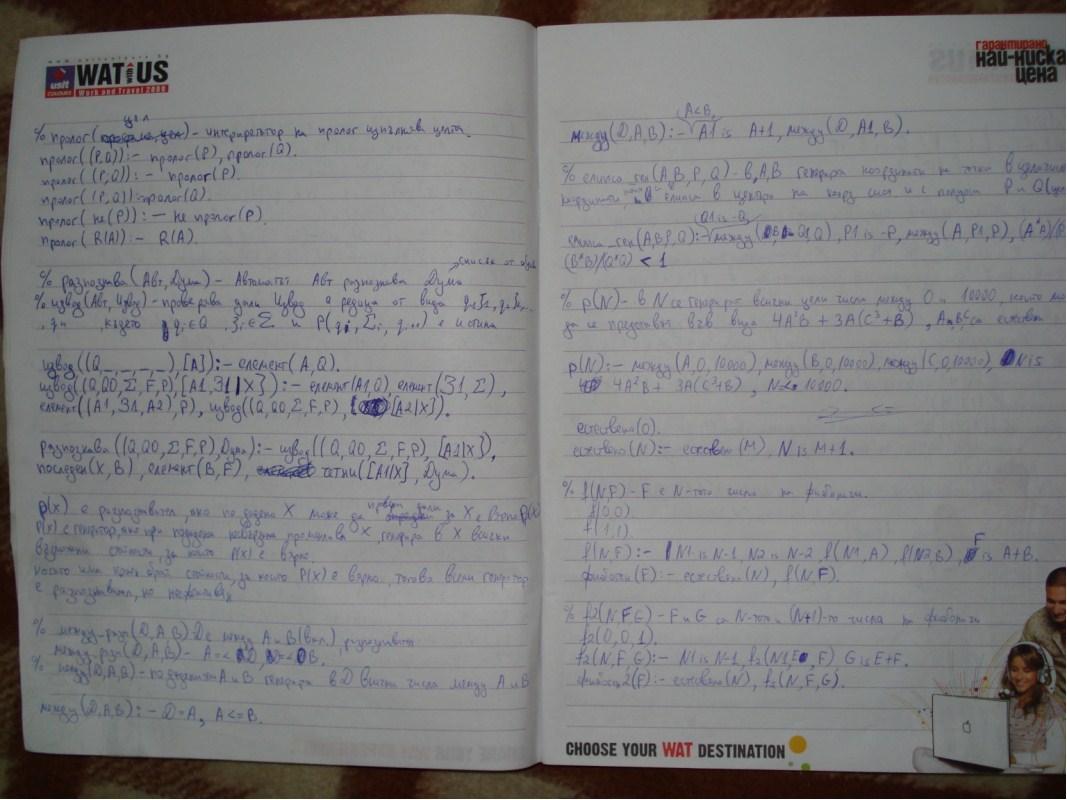 usit
COLOURS
WAT US
Work and Travel 2009
цел
% пролог( ) – интерпретатор на пролог изпълнява целта.
пролог((P,Q)):– пролог(P), пролог(Q).
пролог((P;Q)):– пролог(P).
пролог((P;Q)):–пролог(Q).
пролог(не(P)):– не пролог(P).
пролог(R(A)):– R(A).
списък от
% разпознава(Авт, Дума) – Автоматът Авт разпознава Дума
% извод(Авт, Извод) – проверява дали Извод е редица от вида
където q ∈ Q и е истина
извод((Q,_,_,_,_),[A]):– елемент(A,Q).
извод((Q,Q0,Σ,F,P),[A1,З1|X]):– елемент(A1,Q), елемент(З1,Σ),
елемент((A1,З1,A2),P), извод((Q,Q0,Σ,F,P), [A2|X]).
разпознава((Q,Q0,Σ,F,P),Дума):– извод((Q,Q0,Σ,F,P), [A1|X]),
последен(X,B), елемент(B,F), четни([A1|X], Дума).
p(x) е разпознавател, ако по дадено X може да провери дали за X е вярно p(x)
P(x) е генератор, ако при подадена свободна променлива X, генерира в X всички
възможни стойности, за които P(x) е вярно.
когато има краен брой стойности, за които P(x) е вярно, тогава всеки генератор
е разпознавател, но
% между-разп(D,A,B) D е между A и B(вкл.) разпознавател
между-разп(D,A,B) – A=<D, D=<B.
% между(D,A,B) – по дадени A и B генерира в D всички числа между A и B
между(D,A,B):– D=A, A<=B.
гарантирано
най-ниска
цена
A<B,
между(D,A,B):– A1 is A+1, между(D,A1,B).
% елипса_ген(A,B,P,Q) – в A,B генерира координати на точки в целочислени
координати, елипса в център на коорд и с полуоси P и Q(цели
Q1 is -Q,
елипса_ген(A,B,P,Q):– между(B,Q1,Q), P1 is -P, между(A,P1,P), (A*A)/(P
(B*B)/(Q*Q) < 1
% p(N) – в N се генерират всички цели числа между 0 и 10000, които мо
да се представят във вида 4A²B + 3A(C³+B), A,B,C са естествени
p(N):– между(A,0,10000), между(B,0,10000), между(C,0,10000), N is
4A²B + 3A(C³+B), N=< 10000.
естествено(0).
естествено(N):– естествено(M), N is M+1.
% f(N,F) – F е N-тото число на фибоначи.
f(0,0).
f(1,1).
f(N,F):– N1 is N-1, N2 is N-2, f(N1,A), f(N2,B), F is A+B.
фибоначи(F):– естествено(N), f(N,F).
% f2(N,F,G) – F и G са N-тото и (N+1)-то числа на фибоначи
f2(0,0,1).
f2(N,F,G):– N1 is N-1, f2(N1,E,F) G is E+F.
фибоначи2(F):– естествено(N), f2(N,F,G).
CHOOSE YOUR WAT DESTINATION